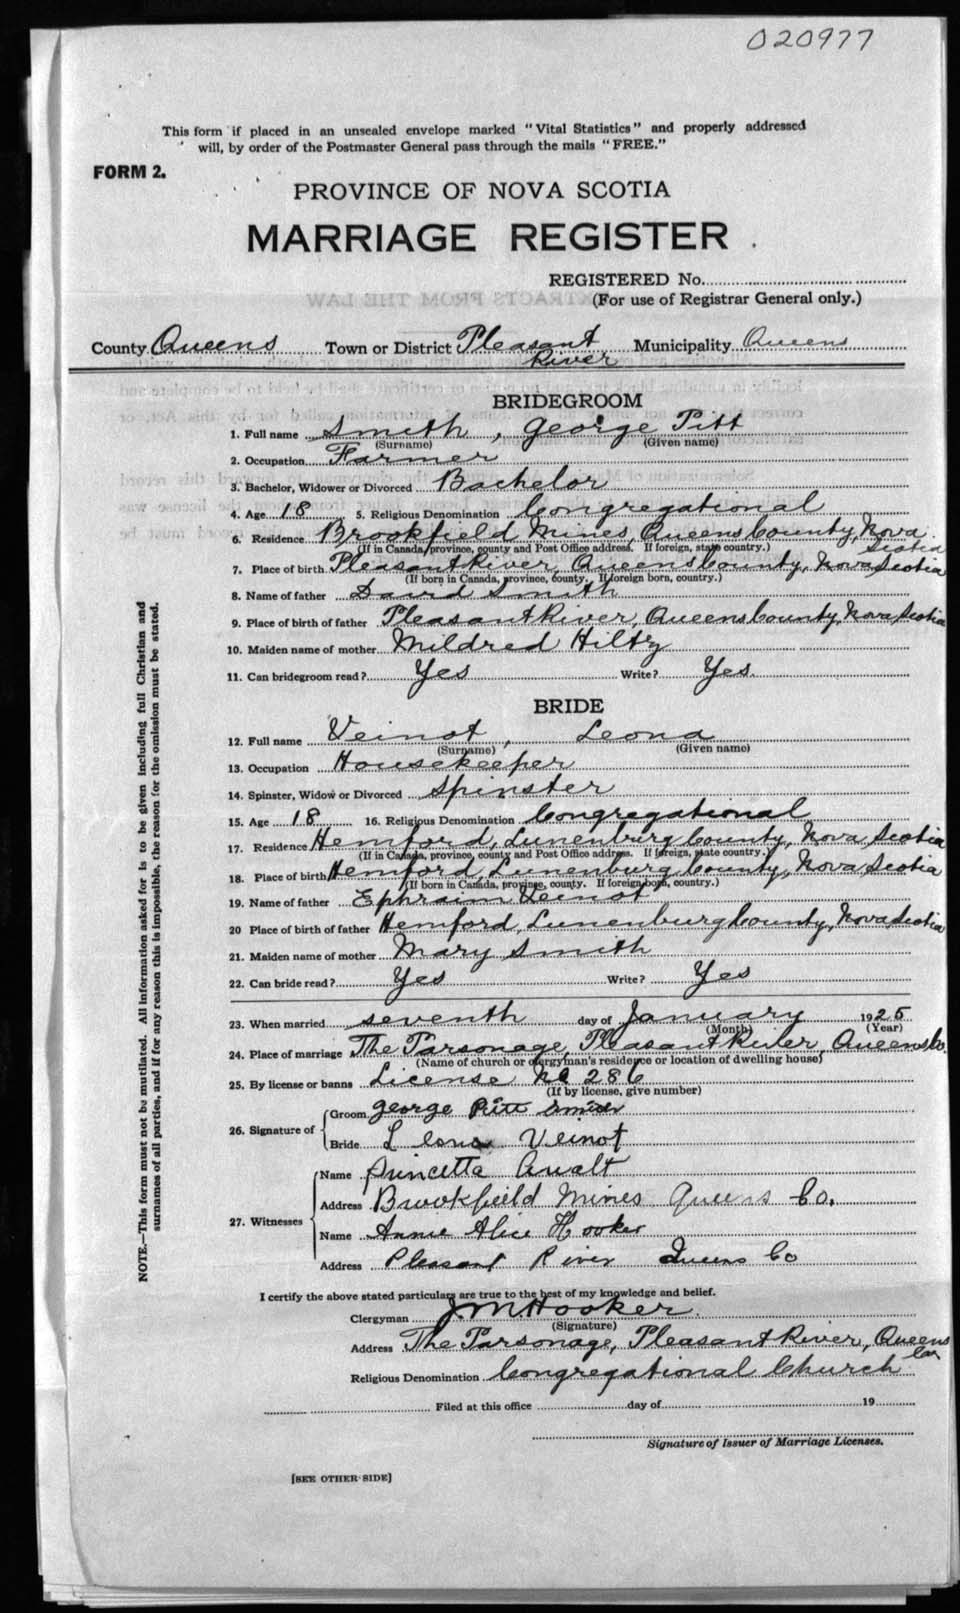 020977
This form if placed in an unsealed envelope marked "Vital Statistics" and properly addressed
will, by order of the Postmaster General pass through the mails "FREE."
FORM 2.
PROVINCE OF NOVA SCOTIA
MARRIAGE REGISTER
REGISTERED No.
(For use of Registrar General only.)
County Queens Town or District Pleasant River Municipality Queens
BRIDEGROOM
1. Full name Smith, George Pitt
(Surname) (Given name)
2. Occupation Farmer
3. Bachelor, Widower or Divorced Bachelor
4. Age 18 5. Religious Denomination Congregational
6. Residence Brookfield Mines, Queens County, Nova Scotia
(If in Canada, province, county and Post Office address. If foreign, state country.)
7. Place of birth Pleasant River, Queens County, Nova Scotia
(If born in Canada, province, county. If foreign born, country.)
8. Name of father David Smith
9. Place of birth of father Pleasant River, Queens County, Nova Scotia
10. Maiden name of mother Mildred Hilty
11. Can bridegroom read? Yes Write? Yes.
BRIDE
12. Full name Veinot, Leona
(Surname) (Given name)
13. Occupation Housekeeper
14. Spinster, Widow or Divorced Spinster
15. Age 18 16. Religious Denomination Congregational
17. Residence Hemford, Lunenburg County, Nova Scotia
(If in Canada, province, county and Post Office address. If foreign, state country.)
18. Place of birth Hemford, Lunenburg County, Nova Scotia
(If born in Canada, province, county. If foreign born, country.)
19. Name of father Ephraim Veinot
20 Place of birth of father Hemford, Lunenburg County, Nova Scotia
21. Maiden name of mother Mary Smith
22. Can bride read? Yes Write? Yes
23. When married seventh day of January 1925
(Month) (Year)
24. Place of marriage The Parsonage, Pleasant River, Queens Co.
(Name of church or clergyman's residence or location of dwelling house)
25. By license or banns License No 286
(If by license, give number)
26. Signature of
Groom George Pitt Smith
Bride Leona Veinot
27. Witnesses
Name Princetta Awalt
Address Brookfield Mines Queens Co.
Name Annie Alice Hooker
Address Pleasant River Queens Co
I certify the above stated particulars are true to the best of my knowledge and belief.
Clergyman J M Hooker.
(Signature)
Address The Parsonage, Pleasant River, Queens Co.
Religious Denomination Congregational Church
Filed at this office day of 19
Signature of Issuer of Marriage Licenses.
[SEE OTHER SIDE]
NOTE.—This form must not be mutilated. All information asked for is to be given including full Christian and
surnames of all parties, and if for any reason this is impossible, the reason for the omission must be stated.